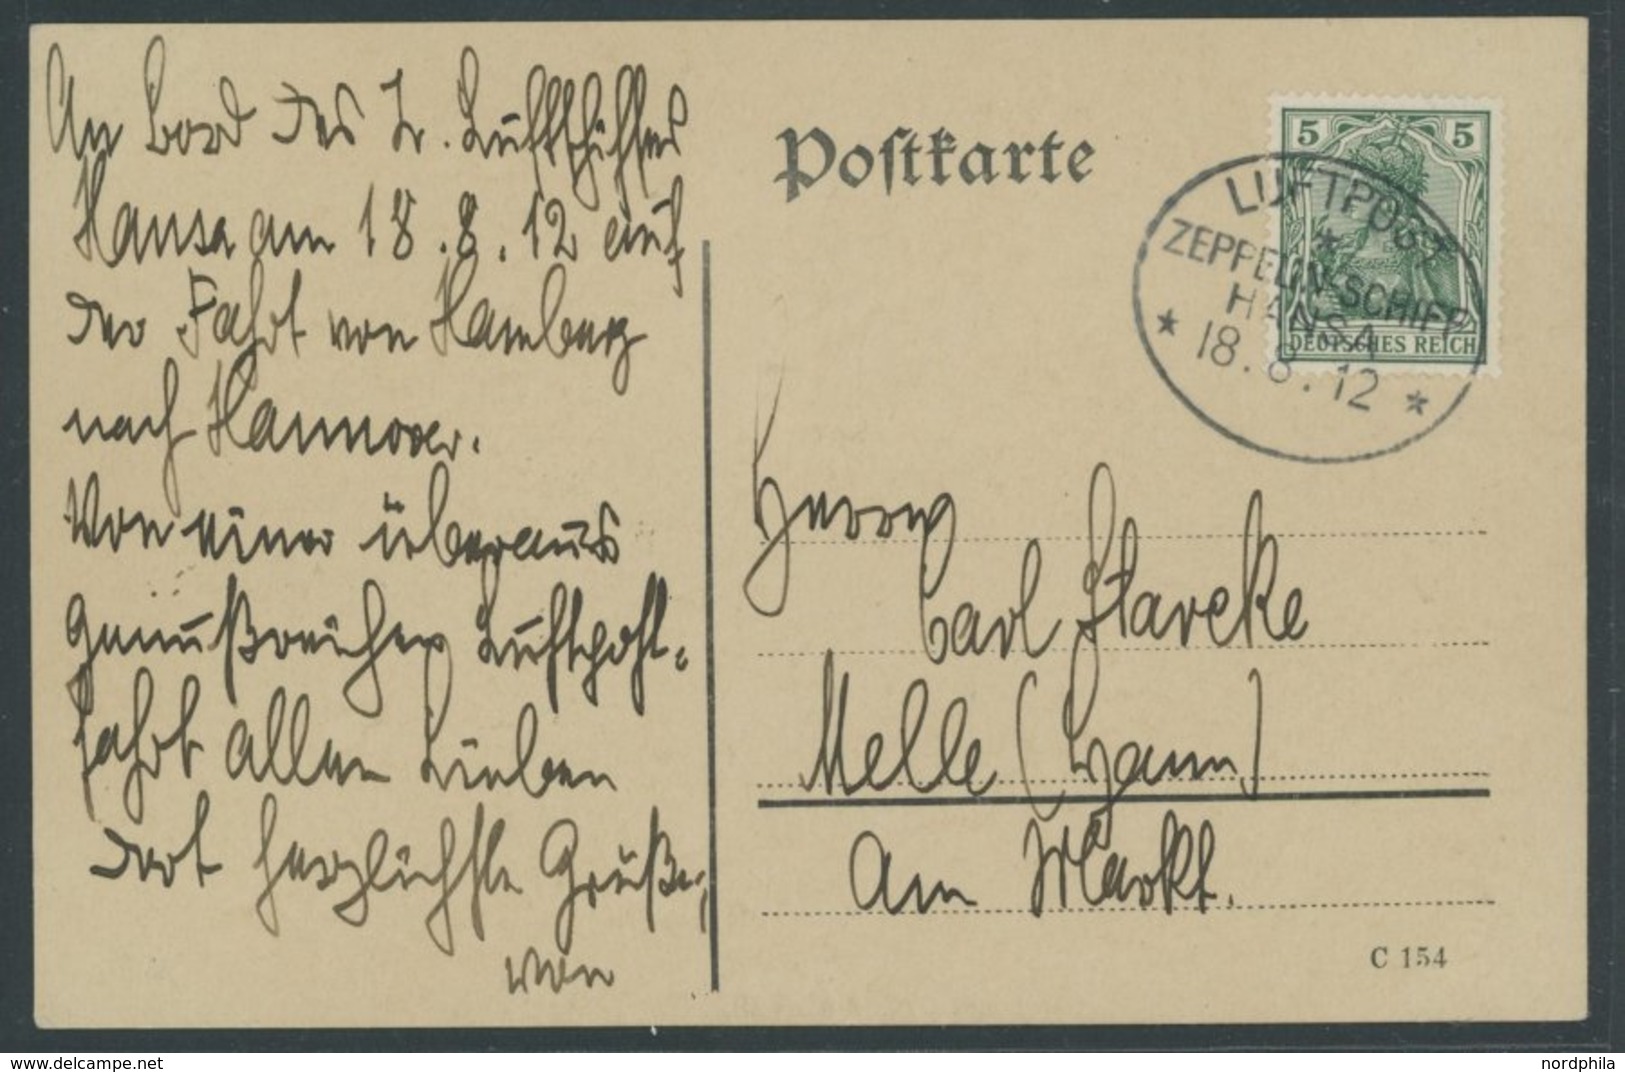 An Bord des Z. Luftschiffes
Hansa am 18.8.12 auf
der Fahrt von Hamburg
nach Hannover.
Von einer überaus
genußreichen Luftpost-
fahrt allen Lieben
dort herzlichste Grüße,
von
Postkarte
5 5
DEUTSCHES REICH
LUFTPOST
*
ZEPPELIN-SCHIFF
HANSA
* 18.8.12 *
Herrn
Carl Starcke
Melle (Hann)
Am Markt.
C 154
www.delcampe.net
nordphila